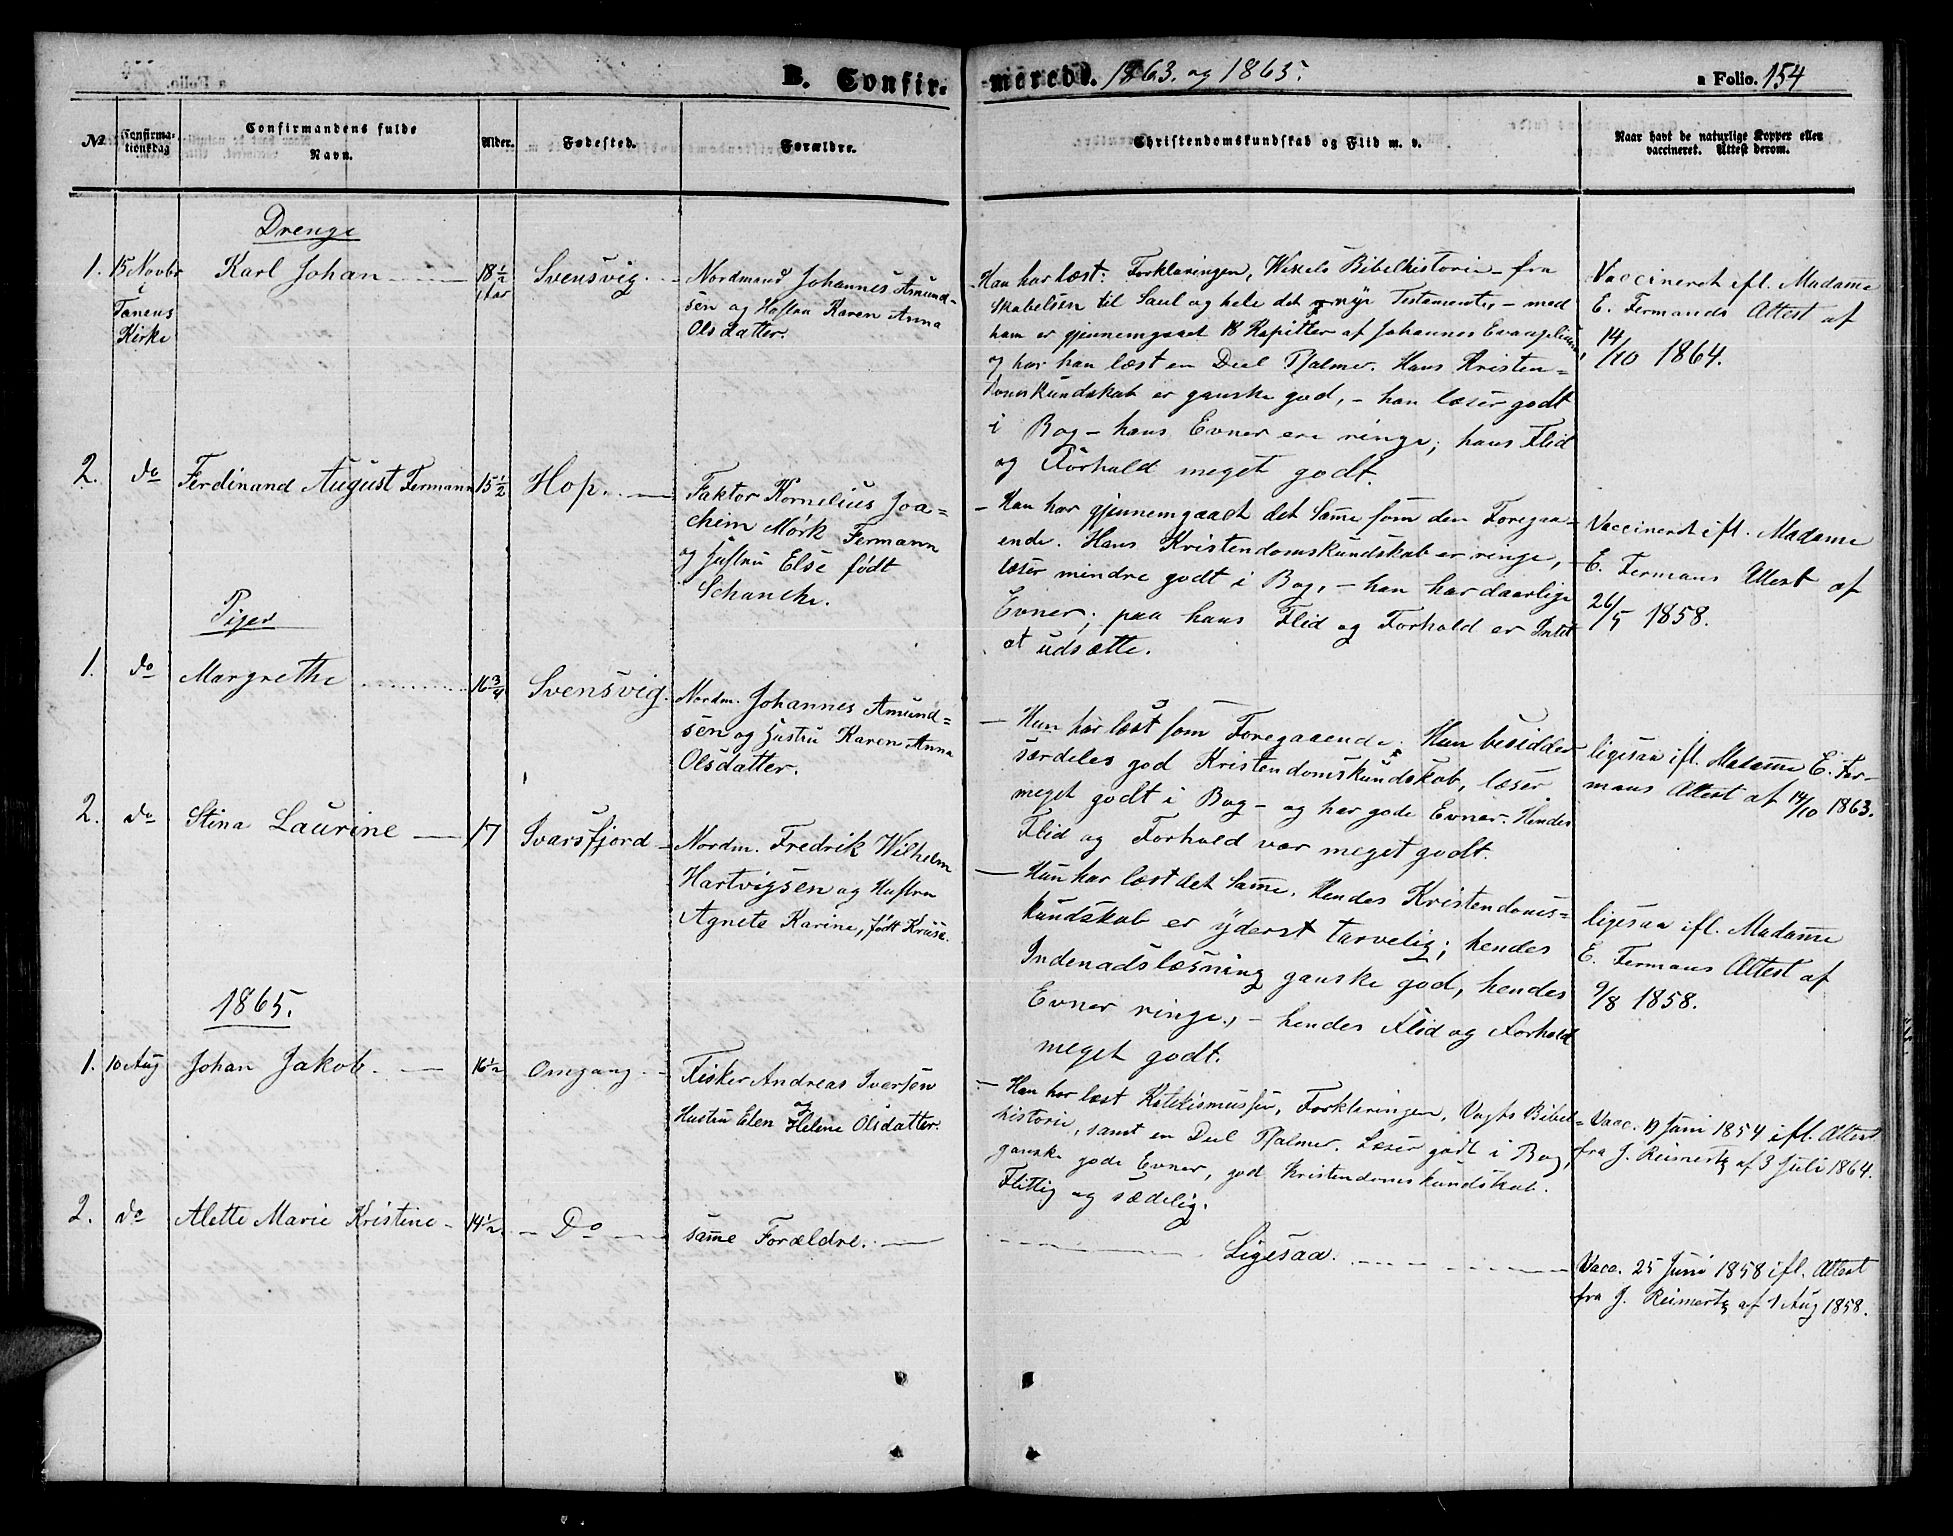 B. Confir-
merede. 1863. og 1865.
a Folio. 154
No
Confirma-
tionsdag
Confirmandens fulde
Navn.
Alder.
Fødested.
Forældre.
Christendomskundskab og Flid m. v.
Naar havt de naturlige Kopper eller
vaccineret. Attest derom.
Drenge
1.
15 Novbr
i
Tanens
Kirke
Karl Johan
18 1/2
Aar
Svensvig.
Nordmand Johannes Amund-
sen og Hustru Karen Anna
Olsdatter.
Han har læst: Forklaringen, Wexels Bibelhistorie - fra
Skabelsen til Saul og hele det nye Testamente, - med
ham er gjennemgaaet 18 Kapitler af Johannes Evangelium,
og har han læst en Deel Psalmer. Hans Kristen=
domskundskab er ganske god, - han læser godt
i Bog - hans Evner ere ringe; hans Flid
og Forhold meget godt.
Vaccineret ifl. Madame
E. Fermands Attest af
14/10 1864.
2.
do
Ferdinand August Fermann
15 1/2
Hop.
Faktor Kornelius Joa=
chim Mørk Fermann
og Hustru Else født
Schanche.
- Han har gjennemgaaet det Samme som den Foregaa-
ende. Hans Kristendomskundskab er ringe, -
læser mindre godt i Bog, - han har daarlige
Evner; paa hans Flid og Forhold er Intet
at udsætte.
Vaccineret ifl. Madame
E. Fermans Attest af
26/5 1858.
Piger
1.
do
Margrethe
16 3/4
Svensvig.
Nordm. Johannes Amund=
sen og Hustru Karen Anna
Olsdatter.
- Hun har læst som Foregaaende. Hun besidder
særdeles god Kristendomskundskab, læser
meget godt i Bog - og har gode Evner. Hendes
Flid og Forhold var meget godt.
ligesaa ifl. Madame E. Fer-
mans Attest af 14/10 1863.
2.
do
Stina Laurine
17
Ivarsfjord
Nordm. Fredrik Wilhelm
Hartvigsen og Hustru
Agnete Karine, født Kruse.
- Hun har læst det Samme. Hendes Kristendoms=
kundskab er yderst tarvelig; hendes
Indenadslæsning ganske god, hendes
Evner ringe, - hendes Flid og Forhold
meget godt.
ligesaa ifl. Madame
E. Fermans Attest af
9/8 1858.
1865.
1.
10 Aug
Johan Jakob.
16 1/2
Omgang
Fisker Andreas Iversen
og
Hustru Elen Helene Olsdatter.
- Han har læst Katekismusen, Forklaringen, Vogts Bibel=
historie, samt en Deel Psalmer. Læser godt i Bog,
ganske gode Evner, god Kristendomskundskab.
Flittig og sædelig.
Vacc. 19 Juni 1854 ifl. Attest
fra J. Reimertz af 3 Juli 1864.
2.
do
Alette Marie Kristine
14 1/2
Do
samme Forældre.
Ligesaa.
Vacc. 25 Juni 1858 ifl. Attest
fra J. Reimertz af 1 Aug 1858.